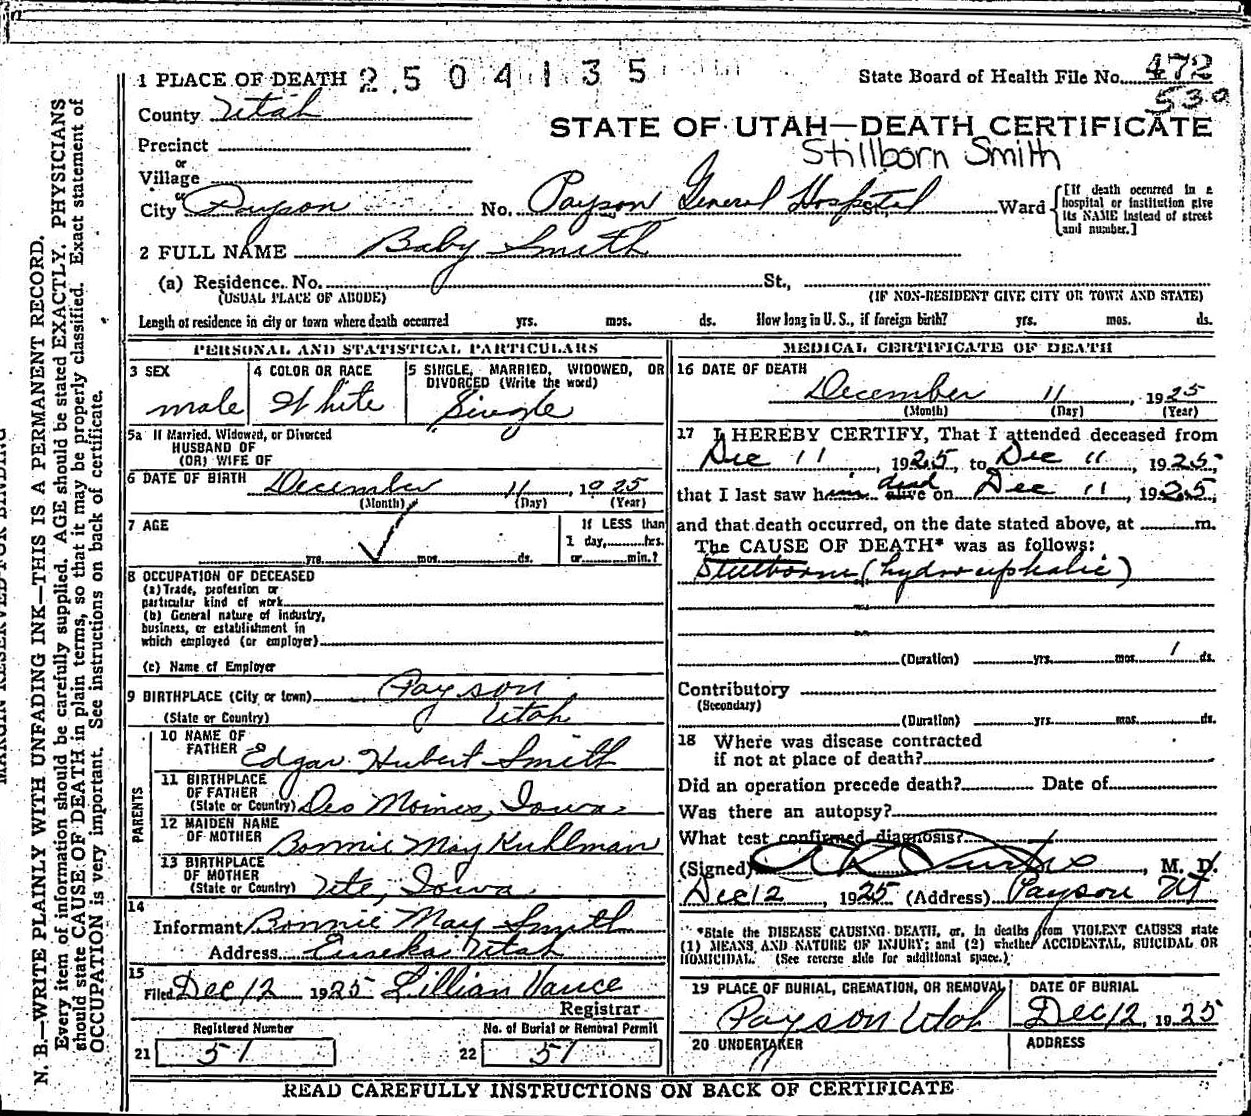 1 PLACE OF DEATH 2504135 State Board of Health File No. 472
530
County Utah
STATE OF UTAH—DEATH CERTIFICATE
Precinct
or
Village
Stillborn Smith
or
City Payson No. Payson General Hospital St., Ward [If death occurred in a hospital or institution give its NAME instead of street and number.]
2 FULL NAME Baby Smith
(a) Residence. No. St.,
(USUAL PLACE OF ABODE) (IF NON-RESIDENT GIVE CITY OR TOWN AND STATE)
Length of residence in city or town where death occurred yrs. mos. ds. How long in U. S., if foreign birth? yrs. mos. ds.
PERSONAL AND STATISTICAL PARTICULARS
3 SEX male
4 COLOR OR RACE White
5 SINGLE, MARRIED, WIDOWED, OR DIVORCED (Write the word) Single
5a If Married, Widowed, or Divorced
HUSBAND OF
(OR) WIFE OF
6 DATE OF BIRTH December 11, 1925
(Month) (Day) (Year)
7 AGE yrs. mos. ds.
If LESS than
1 day, hrs.
or min.?
8 OCCUPATION OF DECEASED
(a) Trade, profession or
particular kind of work
(b) General nature of industry,
business, or establishment in
which employed (or employer)
(c) Name of Employer
9 BIRTHPLACE (City or town) Payson
(State or Country) Utah
PARENTS
10 NAME OF
FATHER Edgar Hubert Smith
11 BIRTHPLACE
OF FATHER
(State or Country) Des Moines, Iowa
12 MAIDEN NAME
OF MOTHER Bonnie May Kuhlman
13 BIRTHPLACE
OF MOTHER
(State or Country) Ute, Iowa
14
Informant Bonnie May Smith
Address Eureka Utah
15
Filed Dec 12 1925 Lillian Vance
Registrar
Registered Number No. of Burial or Removal Permit
21 51 22 51
MEDICAL CERTIFICATE OF DEATH
16 DATE OF DEATH
December 11, 1925
(Month) (Day) (Year)
17 I HEREBY CERTIFY, That I attended deceased from
Dec 11, 1925, to Dec 11, 1925,
that I last saw him dead alive on Dec 11, 1925,
and that death occurred, on the date stated above, at m.
The CAUSE OF DEATH* was as follows:
Stillborn (hydrocephalic)
(Duration) yrs. mos. 1 ds.
Contributory
(Secondary)
(Duration) yrs. mos. ds.
18 Where was disease contracted
if not at place of death?
Did an operation precede death? Date of
Was there an autopsy?
What test confirmed diagnosis?
(Signed) , M. D.
Dec 12, 1925 (Address) Payson Ut
*State the DISEASE CAUSING DEATH, or, in deaths from VIOLENT CAUSES state
(1) MEANS AND NATURE OF INJURY; and (2) whether ACCIDENTAL, SUICIDAL OR
HOMICIDAL. (See reverse side for additional space.)
19 PLACE OF BURIAL, CREMATION, OR REMOVAL Payson Utah
DATE OF BURIAL Dec 12, 1925
20 UNDERTAKER
ADDRESS
READ CAREFULLY INSTRUCTIONS ON BACK OF CERTIFICATE
MARGIN RESERVED FOR BINDING
N. B.—WRITE PLAINLY WITH UNFADING INK—THIS IS A PERMANENT RECORD.
Every item of information should be carefully supplied. AGE should be stated EXACTLY. PHYSICIANS
should state CAUSE OF DEATH in plain terms, so that it may be properly classified. Exact statement of
OCCUPATION is very important. See instructions on back of certificate.